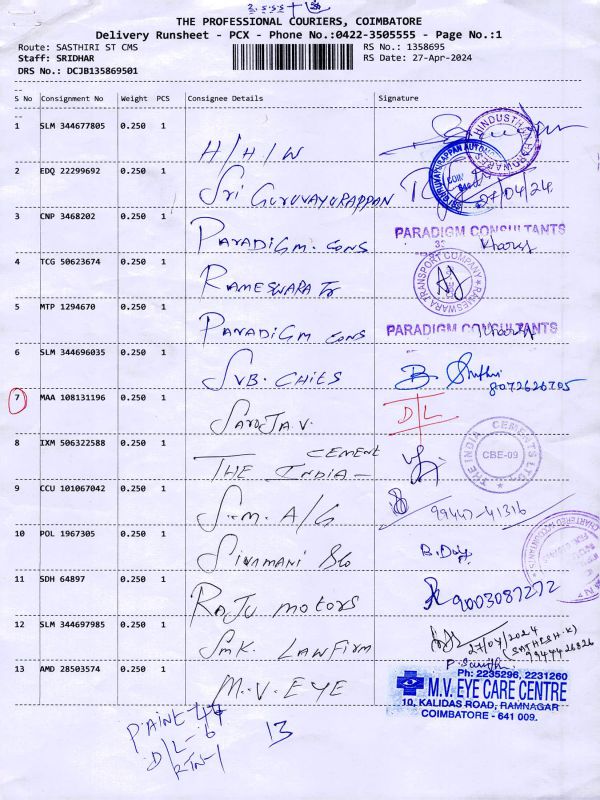 THE PROFESSIONAL COURIERS, COIMBATORE
Delivery Runsheet - PCX - Phone No.:0422-3505555 - Page No.:1
Route: SASTHIRI ST CMS
RS No.: 1358695
Staff: SRIDHAR
RS Date: 27-Apr-2024
DRS No.: DCJB135869501
S No Consignment No Weight PCS Consignee Details Signature
1 SLM 344677805 0.250 1 H/H/W
HINDUSTHAN HARDWARES
2 EDQ 22299692 0.250 1 Sri Guruvayurappan
27/04/24
3 CNP 3468202 0.250 1 Paradigm. cons
PARADIGM CONSULTANTS
4 TCG 50623674 0.250 1 Rameswara Tr
RAMESWARA TRANSPORT COMPANY
5 MTP 1294670 0.250 1 Paradigm cons
PARADIGM CONSULTANTS
6 SLM 344696035 0.250 1 SVB. CHITS
8072626705
7 MAA 108131196 0.250 1 Saroja.V.
D/L
8 IXM 506322588 0.250 1 THE INDIA - CEMENT
THE INDIA CEMENTS LTD
CBE-09
9 CCU 101067042 0.250 1 S.M. A/G
99447-41316
10 POL 1967305 0.250 1 Sivamani
CHARTERED ACCOUNTANTS
11 SDH 64897 0.250 1 Raju motors
9003087272
12 SLM 344697985 0.250 1 SMK. LAW FIRM
27/04/2024
13 AMD 28503574 0.250 1 M.V. EYE
Ph: 2235296, 2231260
M.V. EYE CARE CENTRE
10, KALIDAS ROAD, RAMNAGAR
COIMBATORE - 641 009.
13